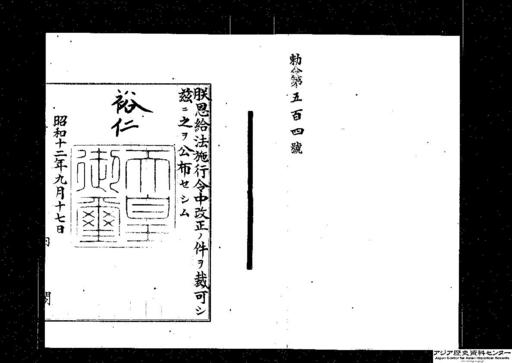 勅令第五百四號
朕恩給法施行令中改正ノ件ヲ裁可シ
茲ニ之ヲ公布セシム
裕仁
天皇御璽
昭和十二年九月十七日
内閣
アジア歴史資料センター
Japan Center for Asian Historical Records